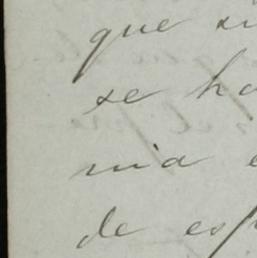 que su
se ha
mia e
de esp